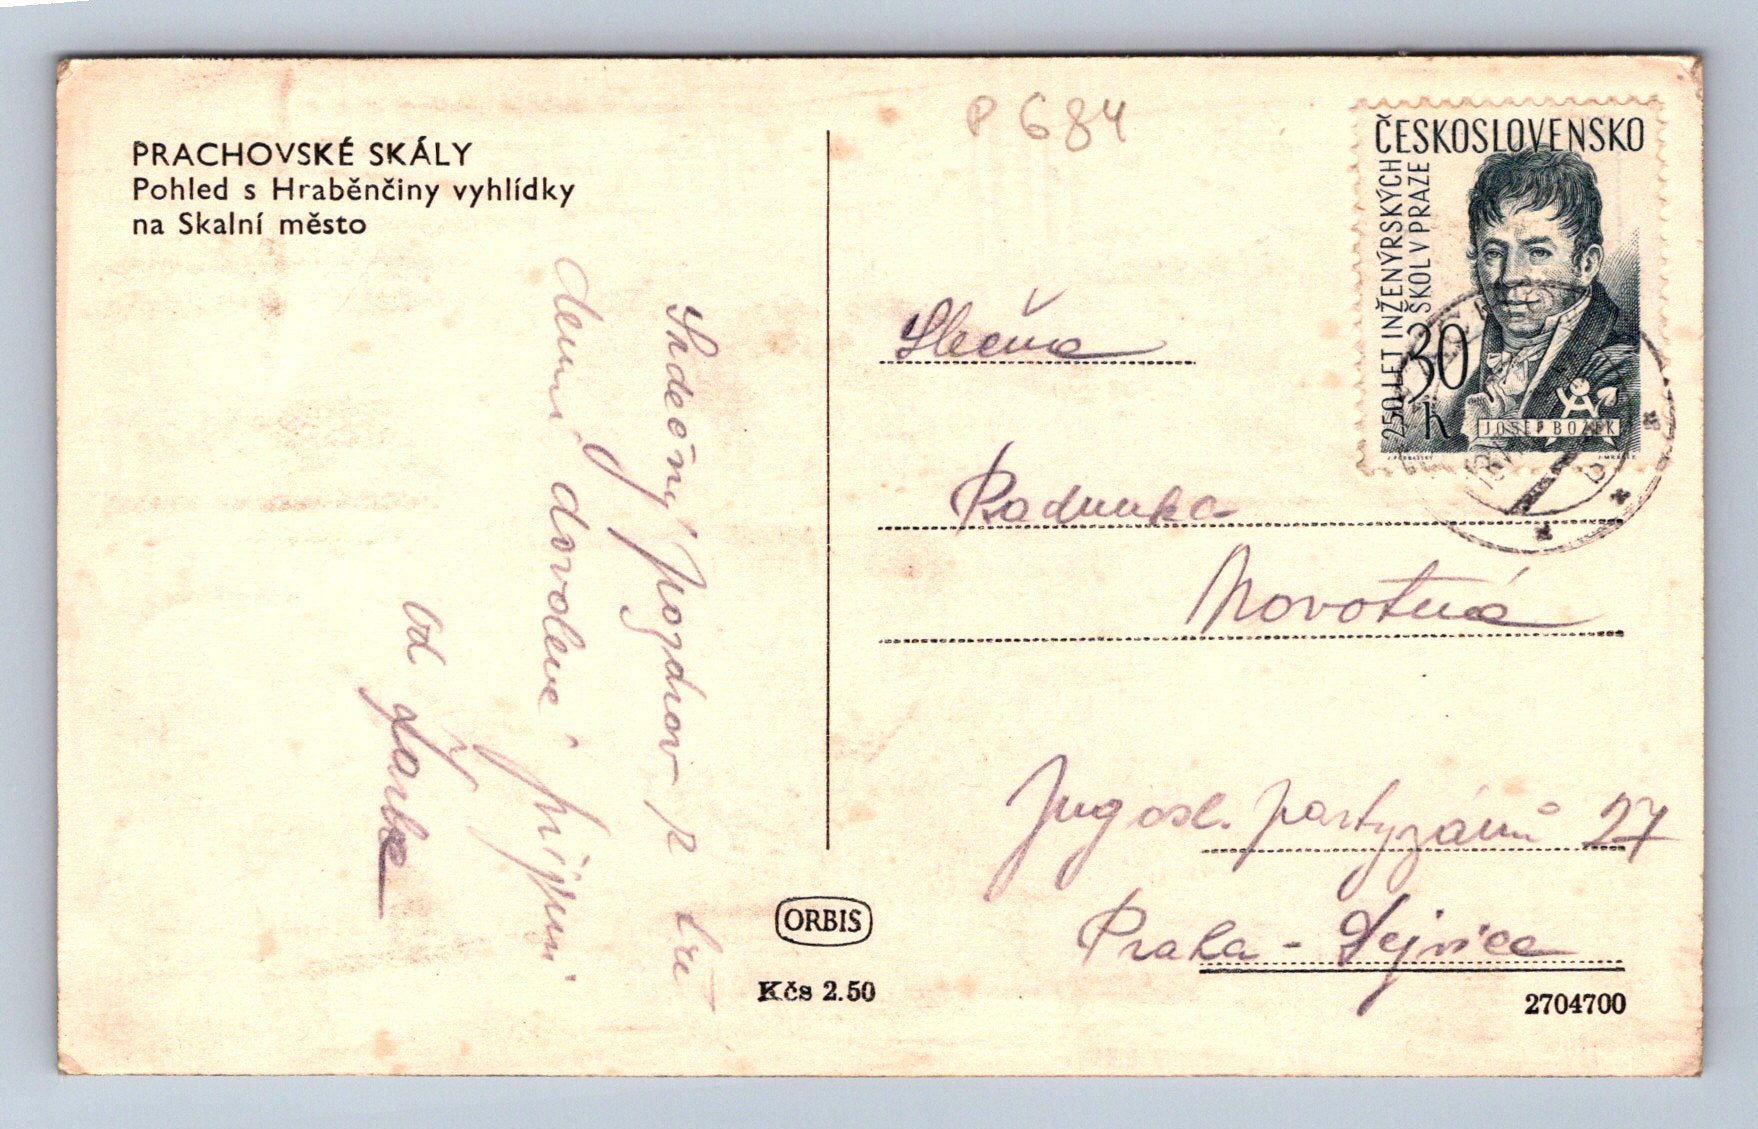 PRACHOVSKÉ SKÁLY
Pohled s Hraběnčiny vyhlídky
na Skalní město
Srdečný pozdrav z
dovolené
od Jarka
P 684
ČESKOSLOVENSKO
250 LET INŽENÝRSKÝCH
ŠKOL V PRAZE
30
h
JOSEF BOŽEK
Slečna
Radunka
Novotná
Jugosl. partyzánů 27
Praha - Dejvice
ORBIS
Kčs 2.50
2704700